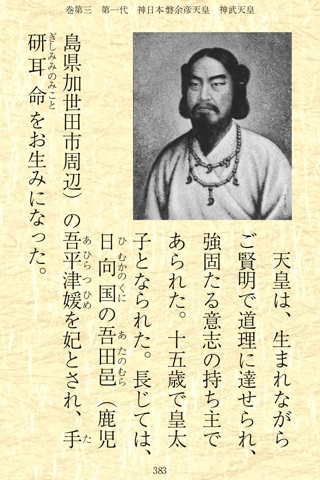 巻第三　第一代　神日本磐余彦天皇　神武天皇
天皇は、生まれながら
ご賢明で道理に達せられ、
強固たる意志の持ち主で
あられた。十五歳で皇太
子となられた。長じては、
日向国の吾田邑（鹿児
ひむかのくに　あたのむら
島県加世田市周辺）の吾平津媛を妃とされ、手
あひらつひめ　た
研耳命をお生みになった。
ぎしみみのみこと
383